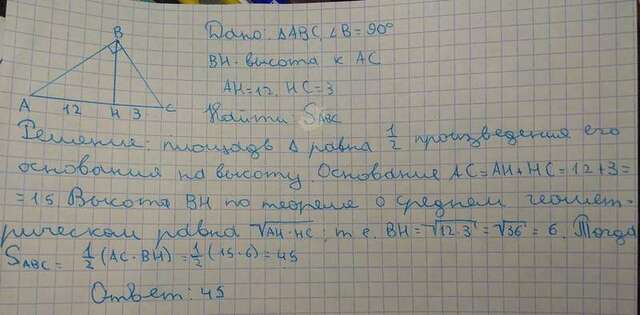 B
Дано: ΔABC, ∠B=90°
BH-высота к AC
AH=12, HC=3
A 12 H 3 C
Найти: S_ABC
Решение: площадь Δ равна 1/2 произведения его
основания на высоту. Основание AC=AH+HC=12+3=
=15. Высота BH по теореме о среднем геомет-
рическом равна √AH·HC; т.е. BH=√12·3=√36=6. Тогда
S_ABC= 1/2(AC·BH)=1/2(15·6)=45
Ответ: 45